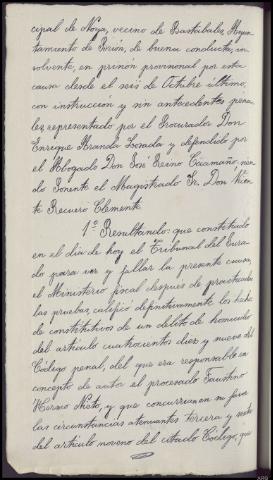 cipal de Noya, vecino de Bastabales, Ayun-
tamiento de Brión, de buena conducta, in-
solvente, en prisión provisional por esta
causa desde el seis de Octubre último,
con instrucción y sin antecedentes pena-
les, representado por el Procurador Don
Enrique Miranda Losada y defendido por
el Abogado Don José Reino Caamaño, sien-
do Ponente el Magistrado Sr. Don Vicen-
te Recuero Clemente.
1º Resultando: que constituido
en el día de hoy el Tribunal del Jura-
do para ver y fallar la presente causa,
el Ministerio fiscal despues de practicadas
las pruebas, calificó definitivamente los hechos
de constitutivos de un delito de homicidio
del artículo cuatrocientos diez y nueve del
Código penal, del que era responsable en
concepto de autor el procesado Faustino
Hermo Nieto, y que concurrian en su favor
las circunstancias atenuantes tercera y
del artículo noveno del citado Código, que